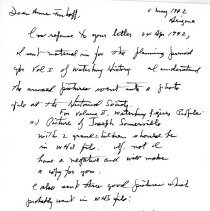 5 May 1982
Dear Anne Imhoff,
In reference to your letter 24 Apr 1982,
I sent material in for the planning period
for Vol I of Waterbury History. I understand
the unused pictures went into a photo
file at the Historical Society.
For Volume II, Waterbury
a) Picture of Joseph Somerville
with 2 grandchildren should be
in file. If not I
have a negative and will make
a copy for you.
I also sent three good pictures which
probably went in file: